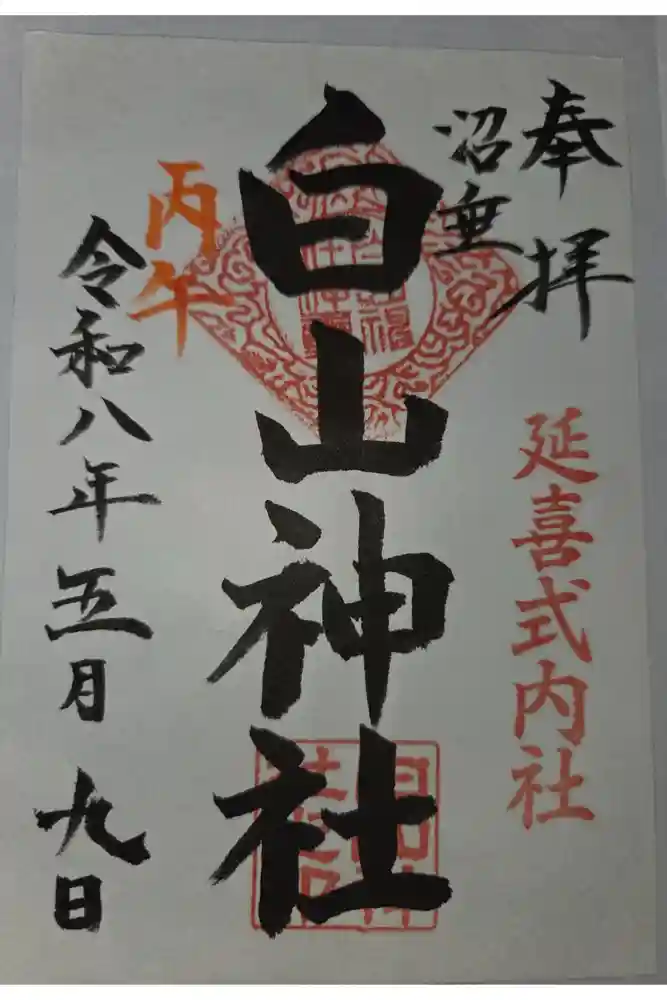 奉拝
沼垂
延喜式内社
白山神社
丙午
令和八年五月九日